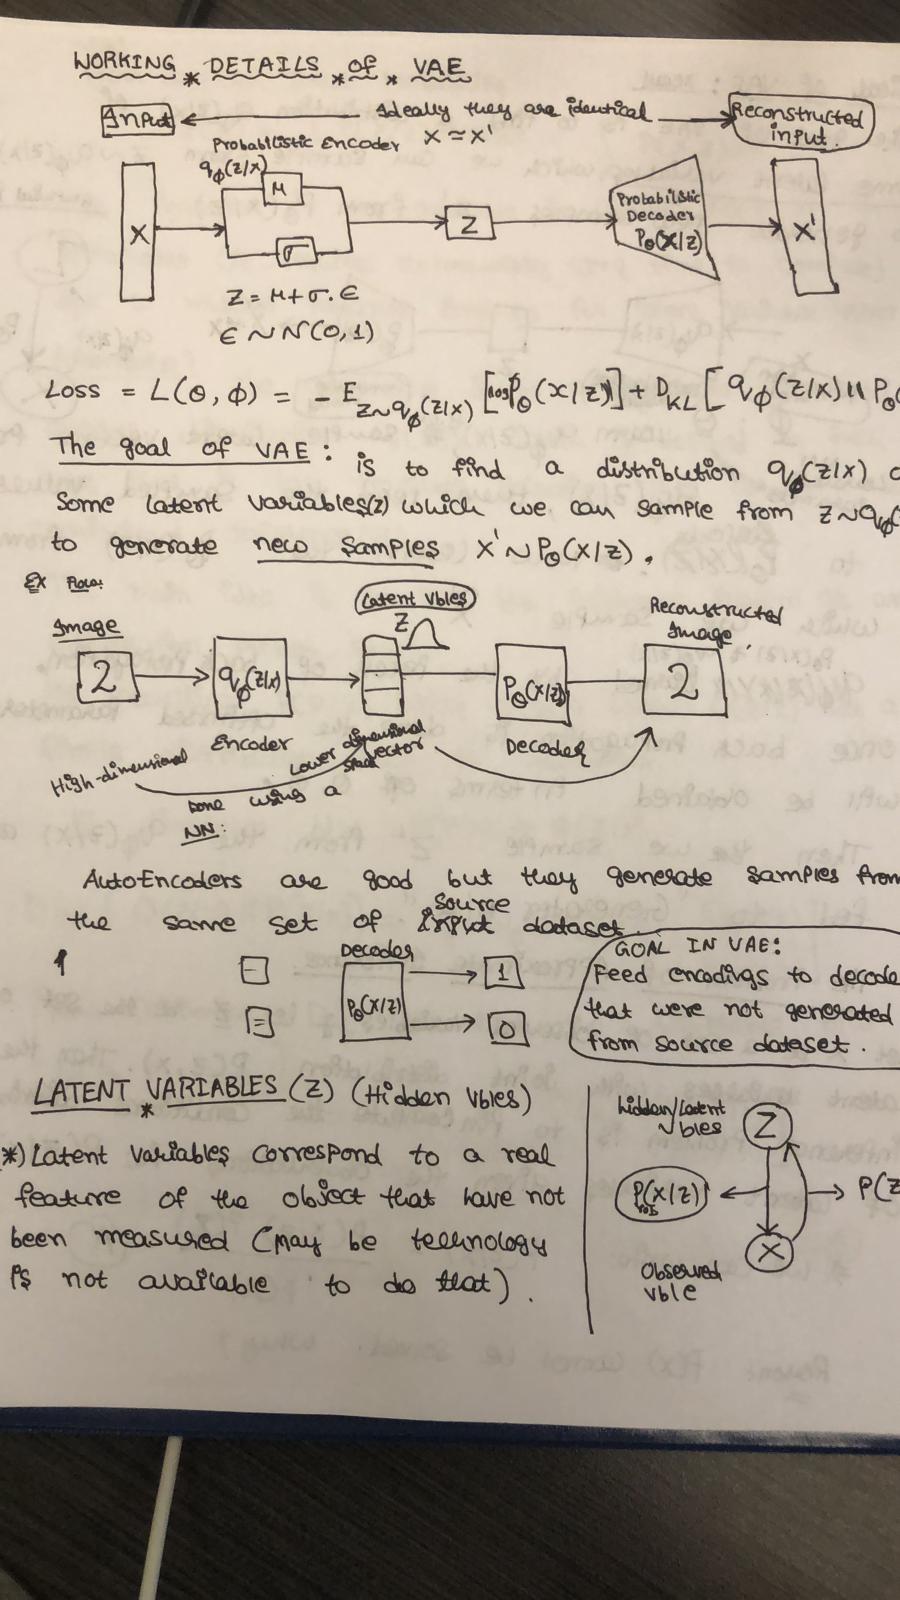 WORKING * DETAILS * of * VAE
Input
Ideally they are identical
Reconstructed
input.
Probabilistic Encoder X ≃ X'
qϕ(z/x)
X
μ
σ
Z
Probabilistic
Decoder
Pθ(X/z)
X'
Z = μ + σ.ϵ
ϵ ~ N(0,1)
Loss = L(θ, ϕ) = - E z~qϕ(z/x) [log Pθ(x/z)] + DKL [qϕ(z/x) || Pθ(
The goal of VAE : is to find a distribution qϕ(z/x) o
Some latent variables(z) which we can sample from z~qϕ(
to generate new samples X' ~ Pθ(X/z).
Ex Flow:
Image
Latent Vbles
Z
Reconstructed
Image
2
qϕ(z/x)
Pθ(X/z)
2
Encoder
Decoder
High-dimensional
Lower dimensional
vector
Done using a
NN:
AutoEncoders are good but they generate samples from
source
the same set of input dataset.
Decoder
Pθ(X/z)
1
0
GOAL IN VAE:
Feed encodings to decode
that were not generated
from source dataset.
LATENT * VARIABLES (Z) (Hidden Vbles)
*) Latent variables correspond to a real
feature of the object that have not
been measured (may be technology
is not available to do that).
hidden/Latent
vbles
Z
P(X/z)
P(z
X
Observed
vble